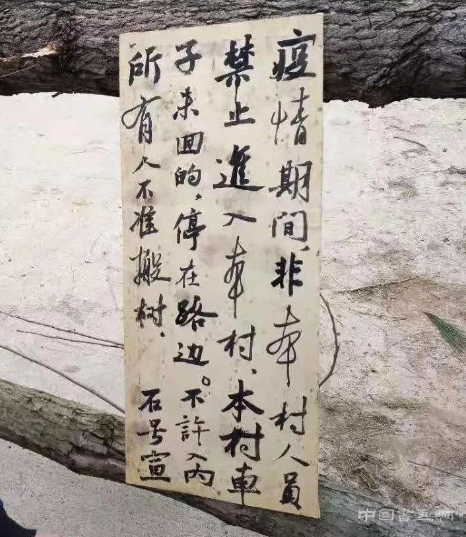 疫情期间,非本村人员
禁止進入本村、本村車
子未回的,停在路边。不許入内
所有人不准搬树、 石号宣
中国书画网